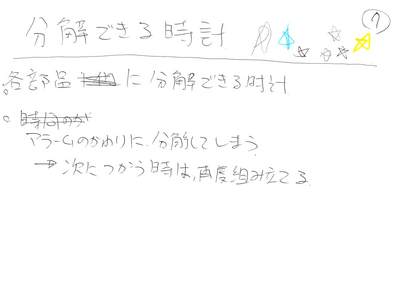 分解できる時計
7
各部品に分解できる時計
アラームのかわりに、分解してしまう
→次につかう時は、再度組み立てる